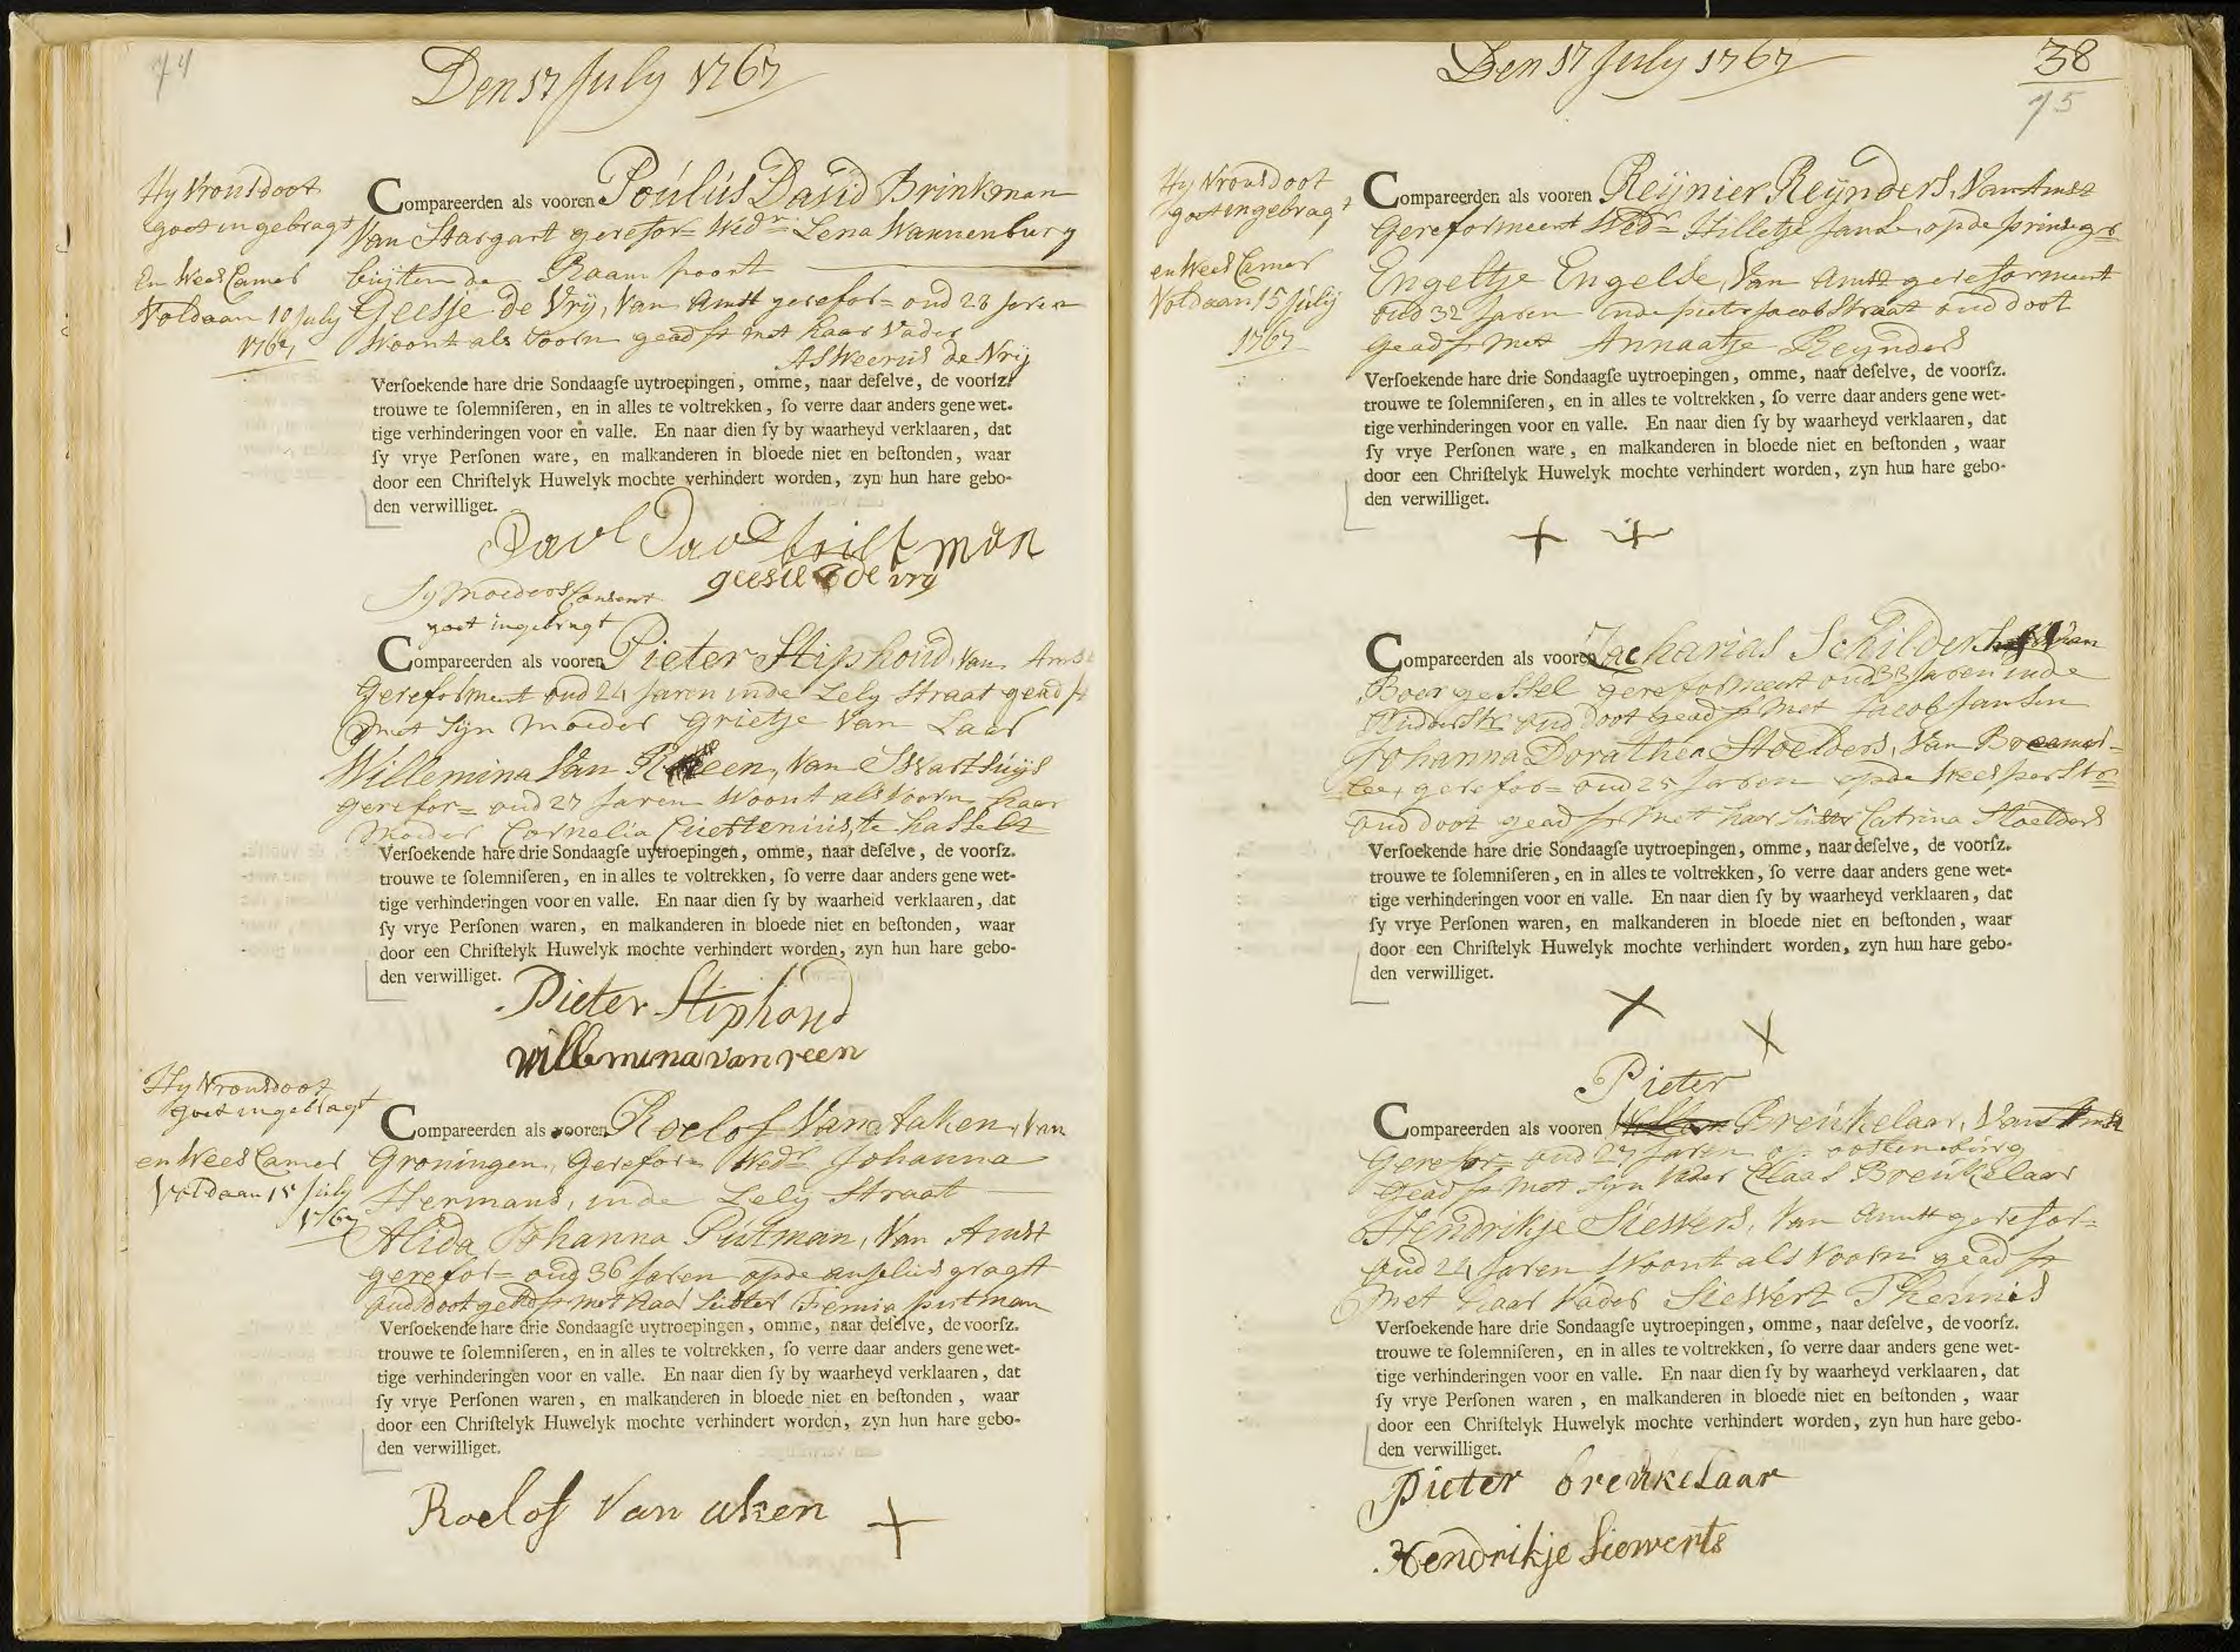 74
Den 17 July 1767
Hy Vrouw doot
goet ingebragt
En WeesCamer
Voldaan 10 July
1767
Compareerden als vooren Poulus David Brinkman
Van Stargart gerefor= Wedr: Lena Wannenburg
buijten de Raam poort
Geesje de Vrij, Van Amst gerefor= oud 28 Jaren
Woont als Voorn geadst met haar Vader
ASWeerus de Vrij
Verſoekende hare drie Sondaagſe uytroepingen, omme, naar deſelve, de voorſz.
trouwe te ſolemniſeren, en in alles te voltrekken, ſo verre daar anders gene wet-
tige verhinderingen voor en valle. En naar dien ſy by waarheyd verklaaren, dat
ſy vrye Perſonen ware, en malkanderen in bloede niet en beſtonden, waar
door een Chriſtelyk Huwelyk mochte verhindert worden, zyn hun hare gebo-
den verwilliget.
Pavl Davd brikman
geesie de vry
Sy Moeders Consent
goet ingebragt
Compareerden als vooren Pieter Stiphoud, Van Amst
Gereformeert oud 24 Jaren inde Lely Straat geadst
met Sijn Moeder Grietje Van Laar
Willemina Van Reen, Van Swartsuijs
gerefor= oud 27 Jaren Woont als Voorn haar
Moeder Cornelia te Hasselt
Verſoekende hare drie Sondaagſe uytroepingen, omme, naar deſelve, de voorſz.
trouwe te ſolemniſeren, en in alles te voltrekken, ſo verre daar anders gene wet-
tige verhinderingen voor en valle. En naar dien ſy by waarheid verklaaren, dat
ſy vrye Perſonen waren, en malkanderen in bloede niet en beſtonden, waar
door een Chriſtelyk Huwelyk mochte verhindert worden, zyn hun hare gebo-
den verwilliget.
Pieter Stiphoud
willemina van reen
Hy Vrouw doot
goet ingebragt
en WeesCamer
Voldaan 15 July
1767
Compareerden als vooren Roelof Van Aken, Van
Groningen, Gerefor= Wedr Johanna
Hermans, inde Lely Straat
Alida Johanna Putman, Van Amst
gerefor= oud 36 Jaren opde anjeliersgragt
oud doot geadst met haar Suster Femia putman
Verſoekende hare drie Sondaagſe uytroepingen, omme, naar deſelve, de voorſz.
trouwe te ſolemniſeren, en in alles te voltrekken, ſo verre daar anders gene wet-
tige verhinderingen voor en valle. En naar dien ſy by waarheyd verklaaren, dat
ſy vrye Perſonen waren, en malkanderen in bloede niet en beſtonden, waar
door een Chriſtelyk Huwelyk mochte verhindert worden, zyn hun hare gebo-
den verwilliget.
Roelof Van aken +
Den 17 July 1767
38
75
Hy Vrouw doot
goet ingebragt
en WeesCamer
Voldaan 15 Julij
1767
Compareerden als vooren Reijnier Reijnders, Van Amst
Gereformeert Wedr Hilletje Janse, opde prinsegr
Engeltje Engelse, Van Amst gereformeert
oud 32 Jaren inde pieter Jacob Straat oud doot
geadst met Annaatje Reynders
Verſoekende hare drie Sondaagſe uytroepingen, omme, naar deſelve, de voorſz.
trouwe te ſolemniſeren, en in alles te voltrekken, ſo verre daar anders gene wet-
tige verhinderingen voor en valle. En naar dien ſy by waarheyd verklaaren, dat
ſy vrye Perſonen ware, en malkanderen in bloede niet en beſtonden, waar
door een Chriſtelyk Huwelyk mochte verhindert worden, zyn hun hare gebo-
den verwilliget.
+ +
Compareerden als vooren Zacharias Schilder Van
Boergessel gereformeert oud 33 Jaren inde
Ridderstr oud doot geadst met Jacob Jansen
Johanna Dorathea Stoelders, Van Breemer=
lee, gerefor= oud 25 Jaren opde Weesperstr
oud doot geadst met haar Suster Catrina Stoelders
Verſoekende hare drie Sondaagſe uytroepingen, omme, naar deſelve, de voorſz.
trouwe te ſolemniſeren, en in alles te voltrekken, ſo verre daar anders gene wet-
tige verhinderingen voor en valle. En naar dien ſy by waarheyd verklaaren, dat
ſy vrye Perſonen waren, en malkanderen in bloede niet en beſtonden, waar
door een Chriſtelyk Huwelyk mochte verhindert worden, zyn hun hare gebo-
den verwilliget.
X X
Pieter
Compareerden als vooren Breukelaar, Van Amst
Gerefor= oud 27 Jaren op oostenburg
geadst met Sijn Vader Claas Breukelaar
Hendrikje Siewers, Van Amst gerefor=
oud 24 Jaren Woont als Voorn geadst
met haar Vader Siewert Theunis
Verſoekende hare drie Sondaagſe uytroepingen, omme, naar deſelve, de voorſz.
trouwe te ſolemniſeren, en in alles te voltrekken, ſo verre daar anders gene wet-
tige verhinderingen voor en valle. En naar dien ſy by waarheyd verklaaren, dat
ſy vrye Perſonen waren, en malkanderen in bloede niet en beſtonden, waar
door een Chriſtelyk Huwelyk mochte verhindert worden, zyn hun hare gebo-
den verwilliget.
Pieter breukelaar
Hendrikje Siewerts